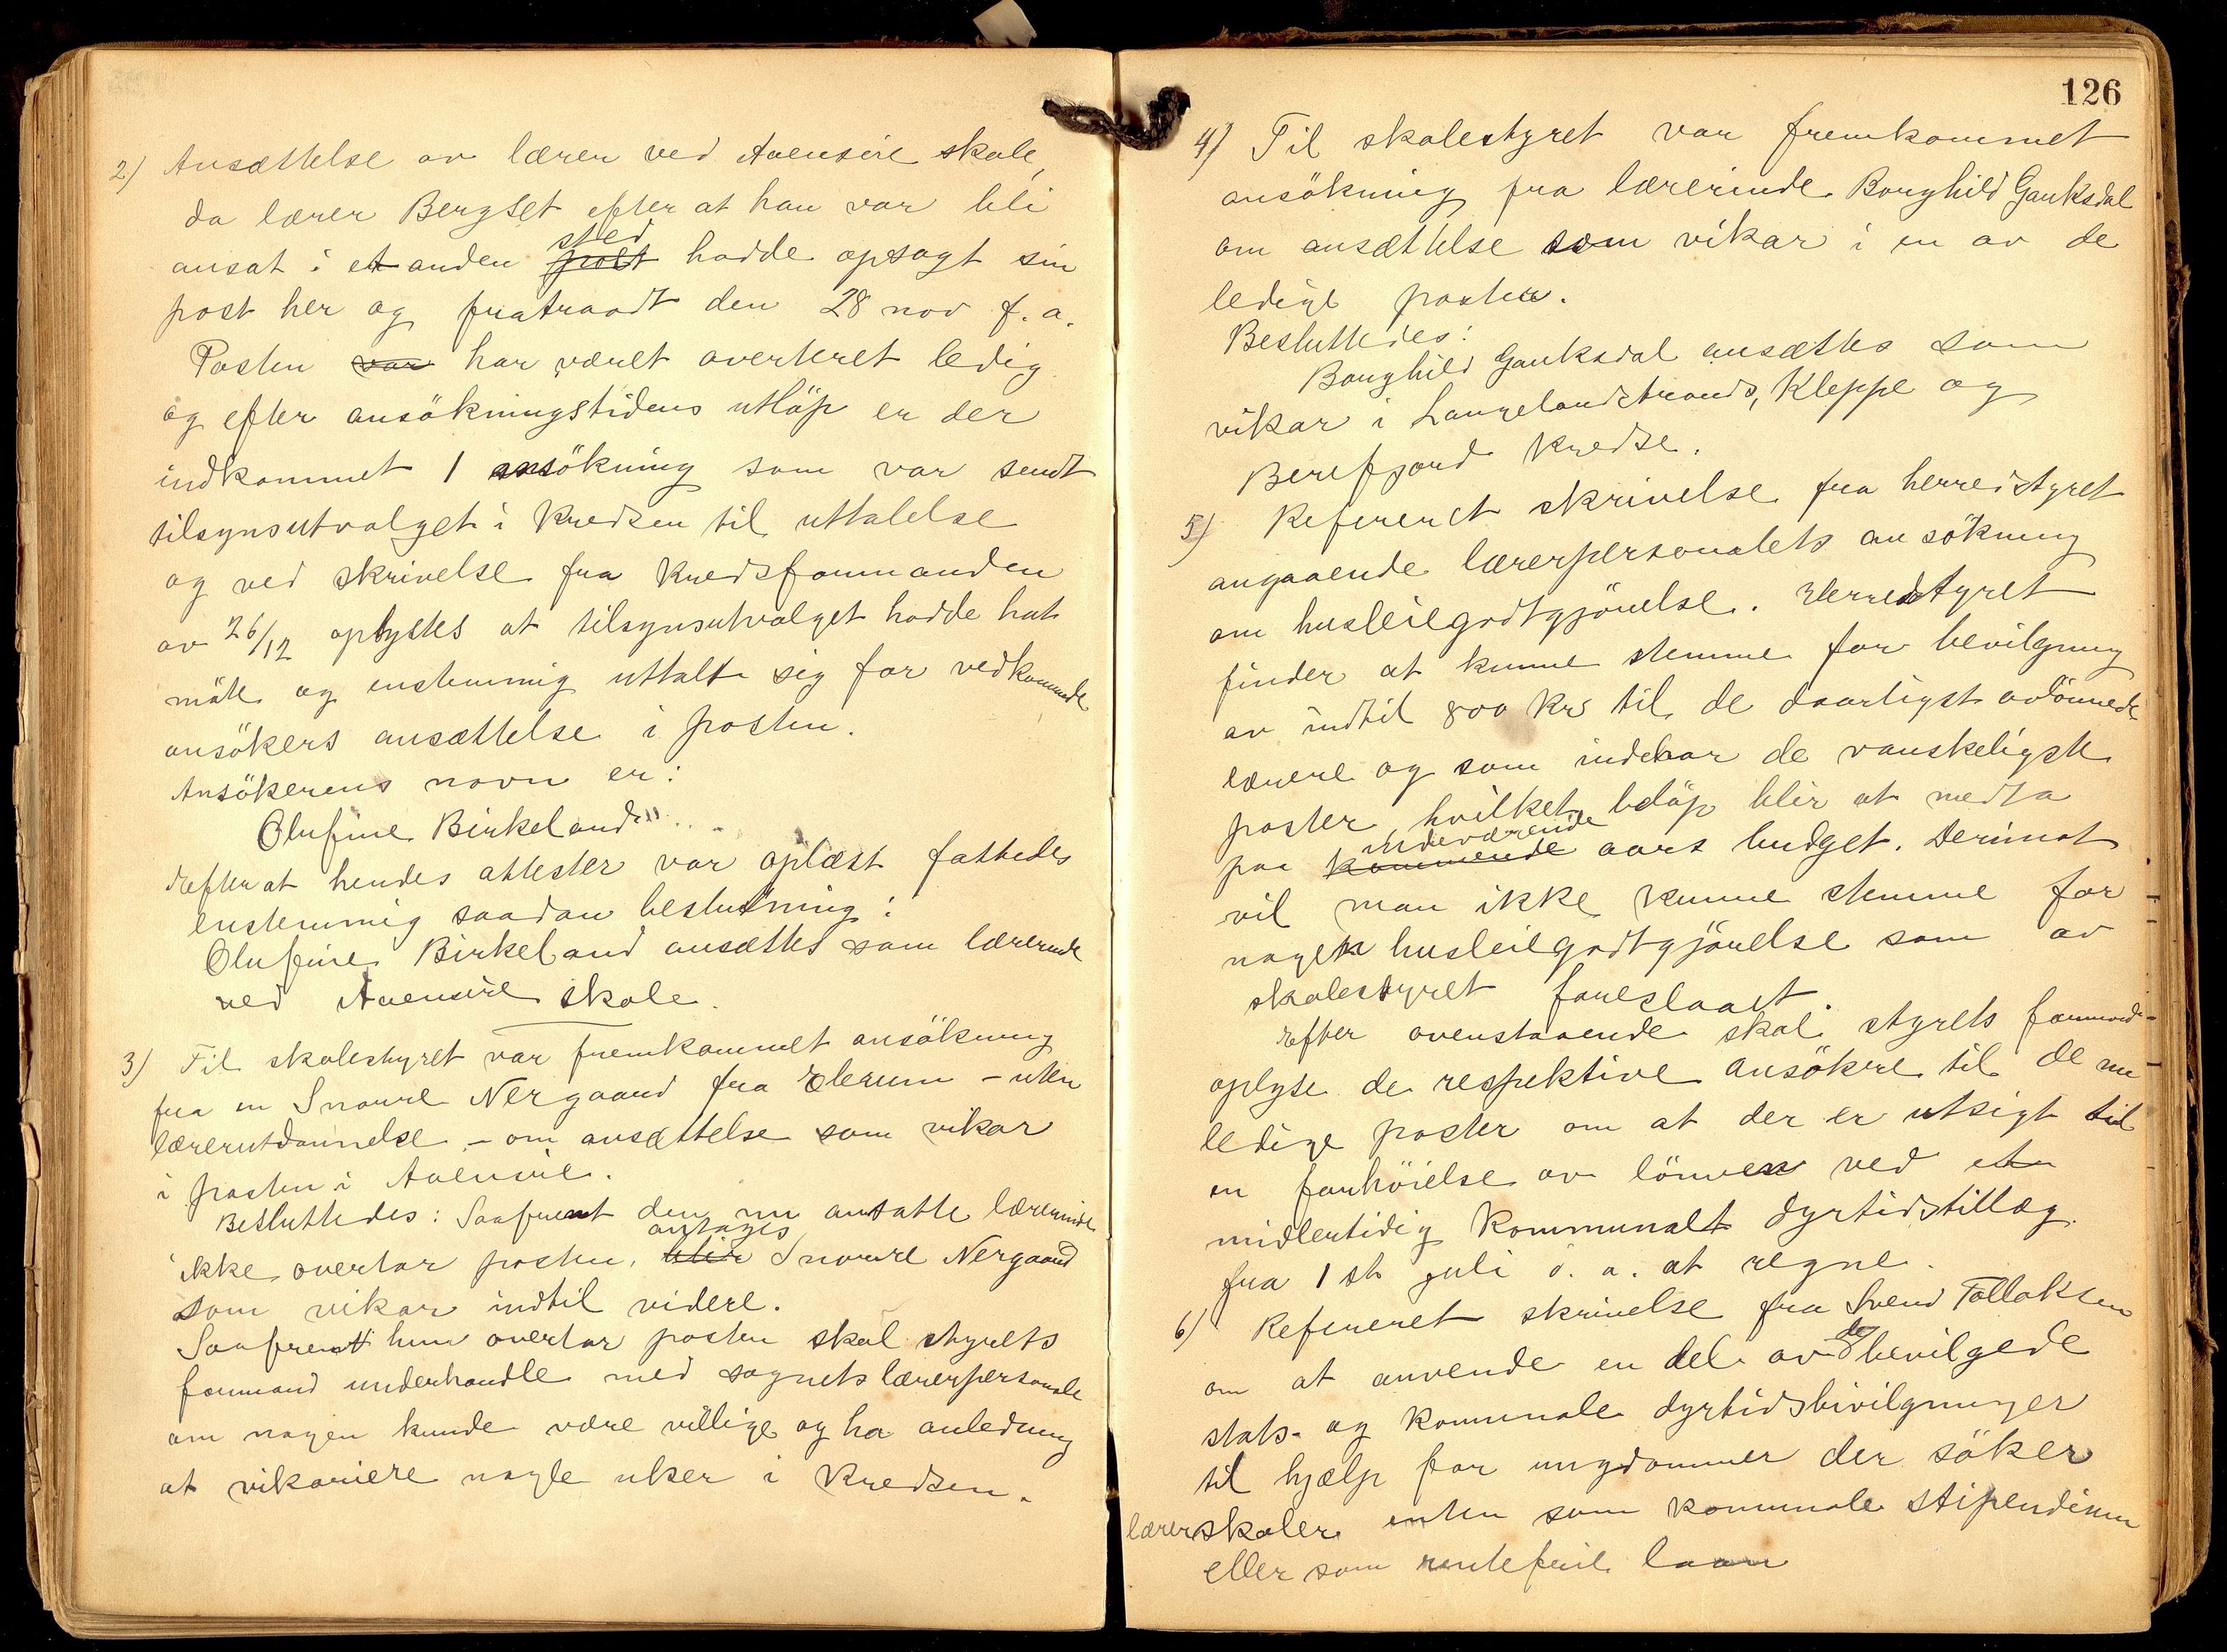 2) Ansættelse av lærer ved Aaensire skole,
da lærer Bergset efter at han var bli
ansat i et anden sted hadde opsagt sin
post her og fratraadt den 28 nov f. a.
Posten var har været averteret ledig
og efter ansökningstidens utlöp er der
indkommet 1 ansökning som var sendt
tilsynsutvalget i Kredsen til uttalelse
og ved skrivelse fra Kredsformanden
av 26/12 oplystes at tilsynsutvalget hadde hat
möte og enstemmig uttalt sig for vedkommende
ansökers ansættelse i posten.
Ansökerens navn er:
Olufine Birkeland
Efter at hendes attester var oplæst fattedes
enstemmig saadan beslutning:
Olufine Birkeland ansættes som lærerinde
ved Aaensire skole.
3) Til skolestyret var fremkommet ansökning
fra en Snorre Nergaard fra Elverum – uten
lærerutdannelse – om ansættelse som vikar
i posten i Aaensire.
Besluttedes: Saafremt den nu ansatte lærerinde
ikke overtar posten, antages Snorre Nergaard
som vikar indtil videre.
Saafremt hun overtar posten skal styrets
formand underhandle med sognets lærerpersonale
om nogen kunde være villige og ha anledning
at vikariere nogle uker i Kredsen.
126
4) Til skolestyret var fremkommet
ansökning fra lærerinde Borghild Gauksdal
om ansættelse som vikar i en av de
ledige poster.
Besluttedes:
Borghild Gauksdal ansættes som
vikar i Langelandstrands, Kleppe og
Berefjord Kredse.
5) Referert skrivelse fra herredstyret
angaaende lærerpersonalets ansökning
om husleiegodtgjörelse. Herredstyret
finder at kunne stemme for bevilgning
av indtil 800 Krs til de daarligst avlönnede
lærere og som indehar de vanskeligste
poster, hvilket belöp blir at medta
paa kommende indeværende aars budget. Derimot
vil man ikke kunne stemme for
nogen husleiegodtgjörelse som av
skolestyret foreslaaet.
Efter ovenstaaende skal styrets formand
oplyse de respektive ansökere til de nu
ledige poster om at der er utsigt til
en forhöielse av lönnen ved et
midlertidig Kommunalt dyrtidstillæg
fra 1ste juli i. a. at regne.
6) Refereret skrivelse fra Svend Tollaksen
om at anvende en del av de bevilgede
stats- og Kommunale dyrtidsbivilgninger
til hjælp for ungdommer der söker
lærerskoler enten som kommunale stipendium
eller som rentefrie laan